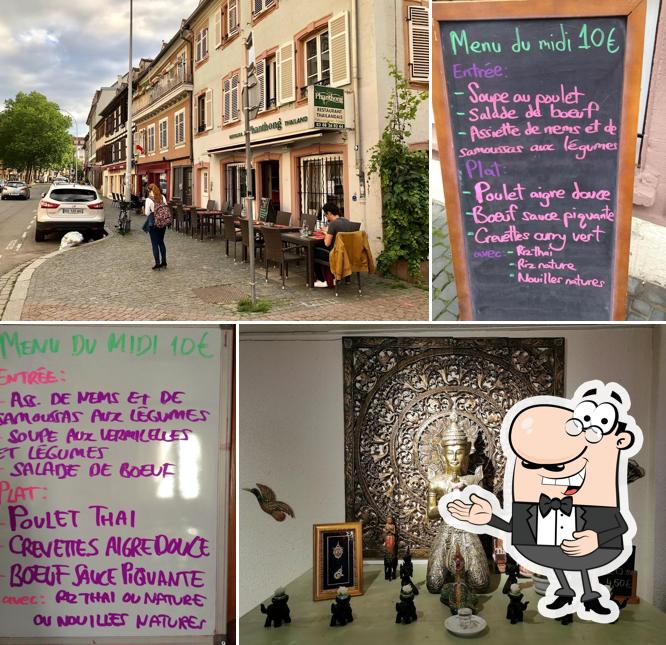 Phanthong
RESTAURANT
THAILANDAIS
Phanthong THAILAND
Menu du midi 10€
Entrée:
- Soupe au poulet
- Salade de bœuf
- Assiette de nems et de
samoussas aux légumes
Plat:
- Poulet aigre douce
- Bœuf sauce piquante
- Crevettes curry vert
avec - Riz thai
- Riz nature
- Nouilles natures
MENU DU MIDI 10€
ENTRÉE:
- ASS. DE NEMS ET DE
SAMOUSSAS AUX LÉGUMES
- SOUPE AUX VERMICELLES
ET LÉGUMES
- SALADE DE BOEUF
PLAT:
- POULET THAI
- CREVETTES AIGRE DOUCE
- BOEUF SAUCE PIQUANTE
avec: RIZ THAI OU NATURE
OU NOUILLES NATURES
4,50€